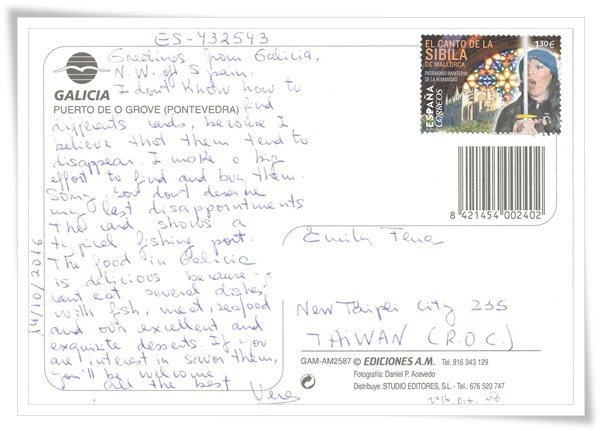 ES-432543
Greetings from Galicia,
N.W. of Spain.
I don't know how to
find
differents cards, because I
believe that them tend to
disappear. I make a big
effort to find and buy them.
Sorry, you don't deserve
my last disappointments
The card shows a
typical fishing port.
The food in Galicia
is delicious because
cant eat several dishes
with fish, meat, seafood
and own excellent and
exquisite desserts. If you
are interest in savoir them,
you'll be welcome
all the best Vera
14/10/2016
GALICIA
PUERTO DE O GROVE (PONTEVEDRA)
EL CANTO DE LA
SIBILA
DE MALLORCA
PATRIMONIO INMATERIAL
DE LA HUMANIDAD
1,30€
ESPAÑA
CORREOS
8 421454 002402
Emily Teng
New Taipei City 235
TAIWAN (R.O.C.)
GAM-AM2587 © EDICIONES A.M. Tel. 916 343 129
Fotografía: Daniel P. Acevedo
Distribuye: STUDIO EDITORES, S.L. - Tel. 676 520 747
2016. Oct.